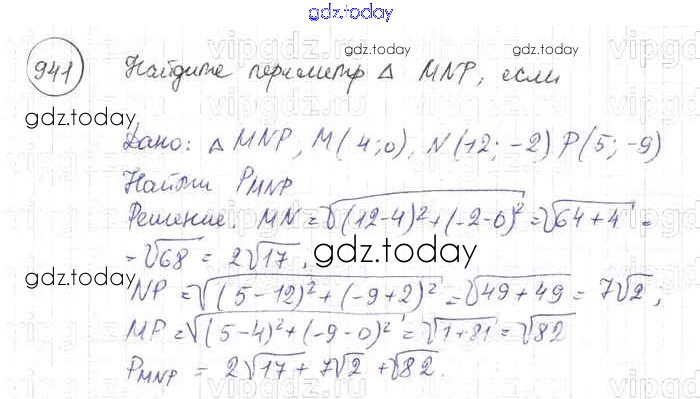 gdz.today
941 Найдите периметр △ MNP, если
gdz.today
gdz.today
Дано: △ MNP, M(4;0), N(12; -2) P(5; -9)
Найти P_MNP
Решение. MN = √((12-4)²+(-2-0)²) = √(64+4) =
= √68 = 2√17,
gdz.today
gdz.today
NP = √((5-12)²+(-9+2)²) = √(49+49) = 7√2,
MP = √((5-4)²+(-9-0)²) = √(1+81) = √82
P_MNP = 2√17 + 7√2 + √82.
gdz.today